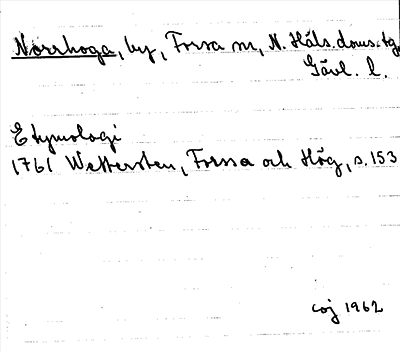 Norrhoga, by, Forsa sn, N. Häls. doms. tg,
Gävl. l.
Etymologi
1761 Wettersten, Forssa och Hög, s. 153
coj 1962